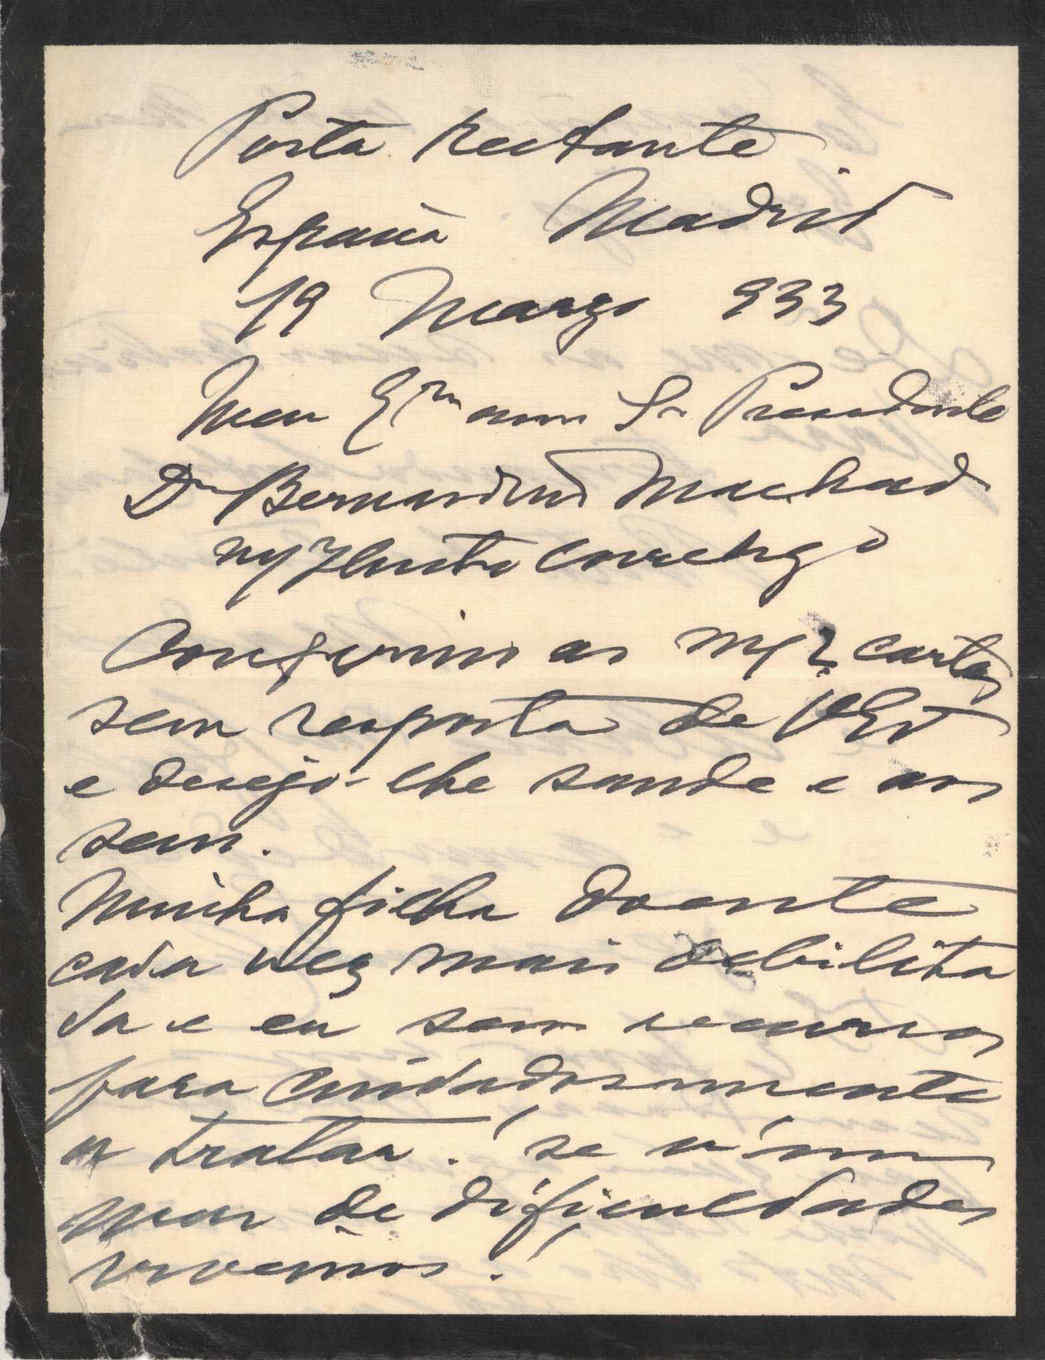 Posta Restante
España Madrid
19 Março 933
Meu Exm amo Sr Presidente
Dr Bernardino Machado
my Illustre
Confirmo as my 2 cartas
sem resposta de VExª
e desejo-lhe saude e aos
seus.
Minha filha doente
cada vez mais debilita
da e eu sem recursos
para cuidadosamente
a tratar.! se n'um
mar de dificuldades
vivemos.!